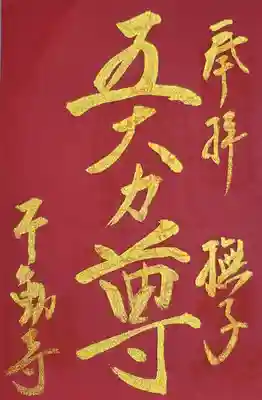 奉拝 撫子
五大力尊
不動寺